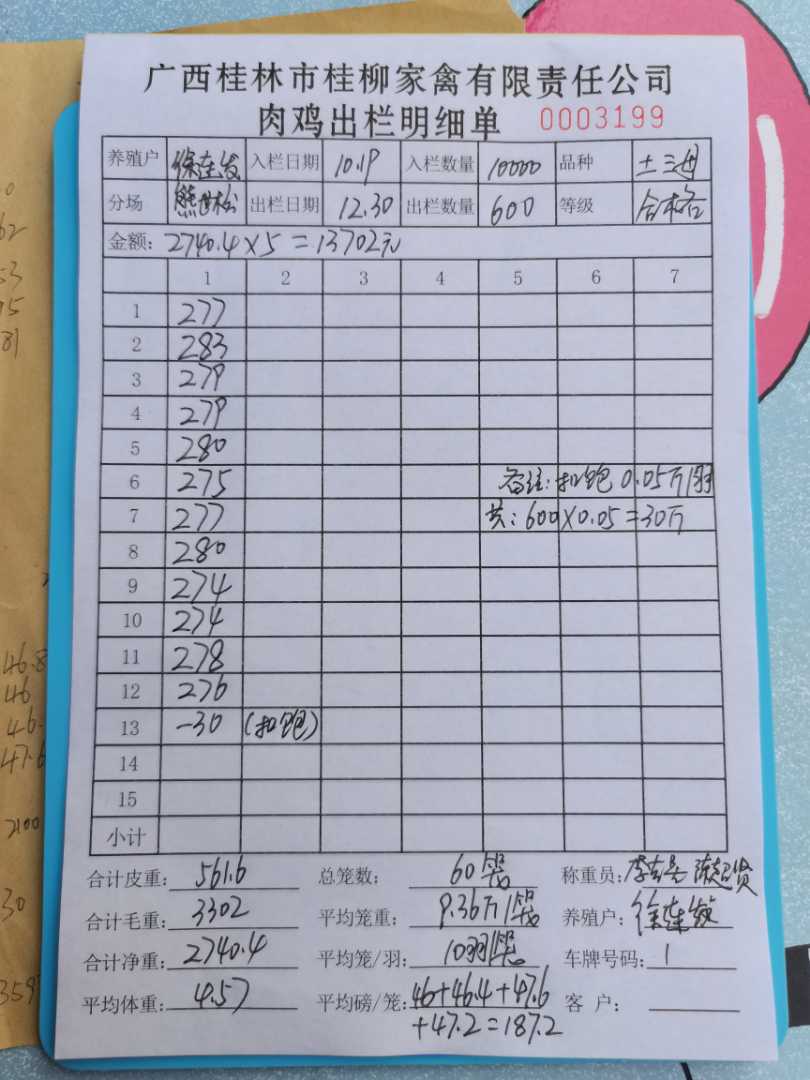 广西桂林市桂柳家禽有限责任公司
肉鸡出栏明细单 0003199
养殖户 徐连发 入栏日期 10.19 入栏数量 10000 品种 土三母
分场 熊世松 出栏日期 12.30 出栏数量 600 等级 合格
金额: 2740.4×5=13702元
1 2 3 4 5 6 7
1 277
2 283
3 279
4 279
5 280
6 275 备注: 扣饱 0.05斤/羽
7 277 共: 600×0.05=30斤
8 280
9 274
10 274
11 278
12 276
13 -30 (扣饱)
14
15
小计
合计皮重: 561.6 总笼数: 60笼 称重员:
合计毛重: 3302 平均笼重: 9.36斤/笼 养殖户: 徐连发
合计净重: 2740.4 平均笼/羽: 10羽/笼 车牌号码: 1
平均体重: 4.57 平均磅/笼: 46+46.4+47.6 客 户:
+47.2=187.2
62
53
81
46.8
46
46.
47.6
2100
30
359